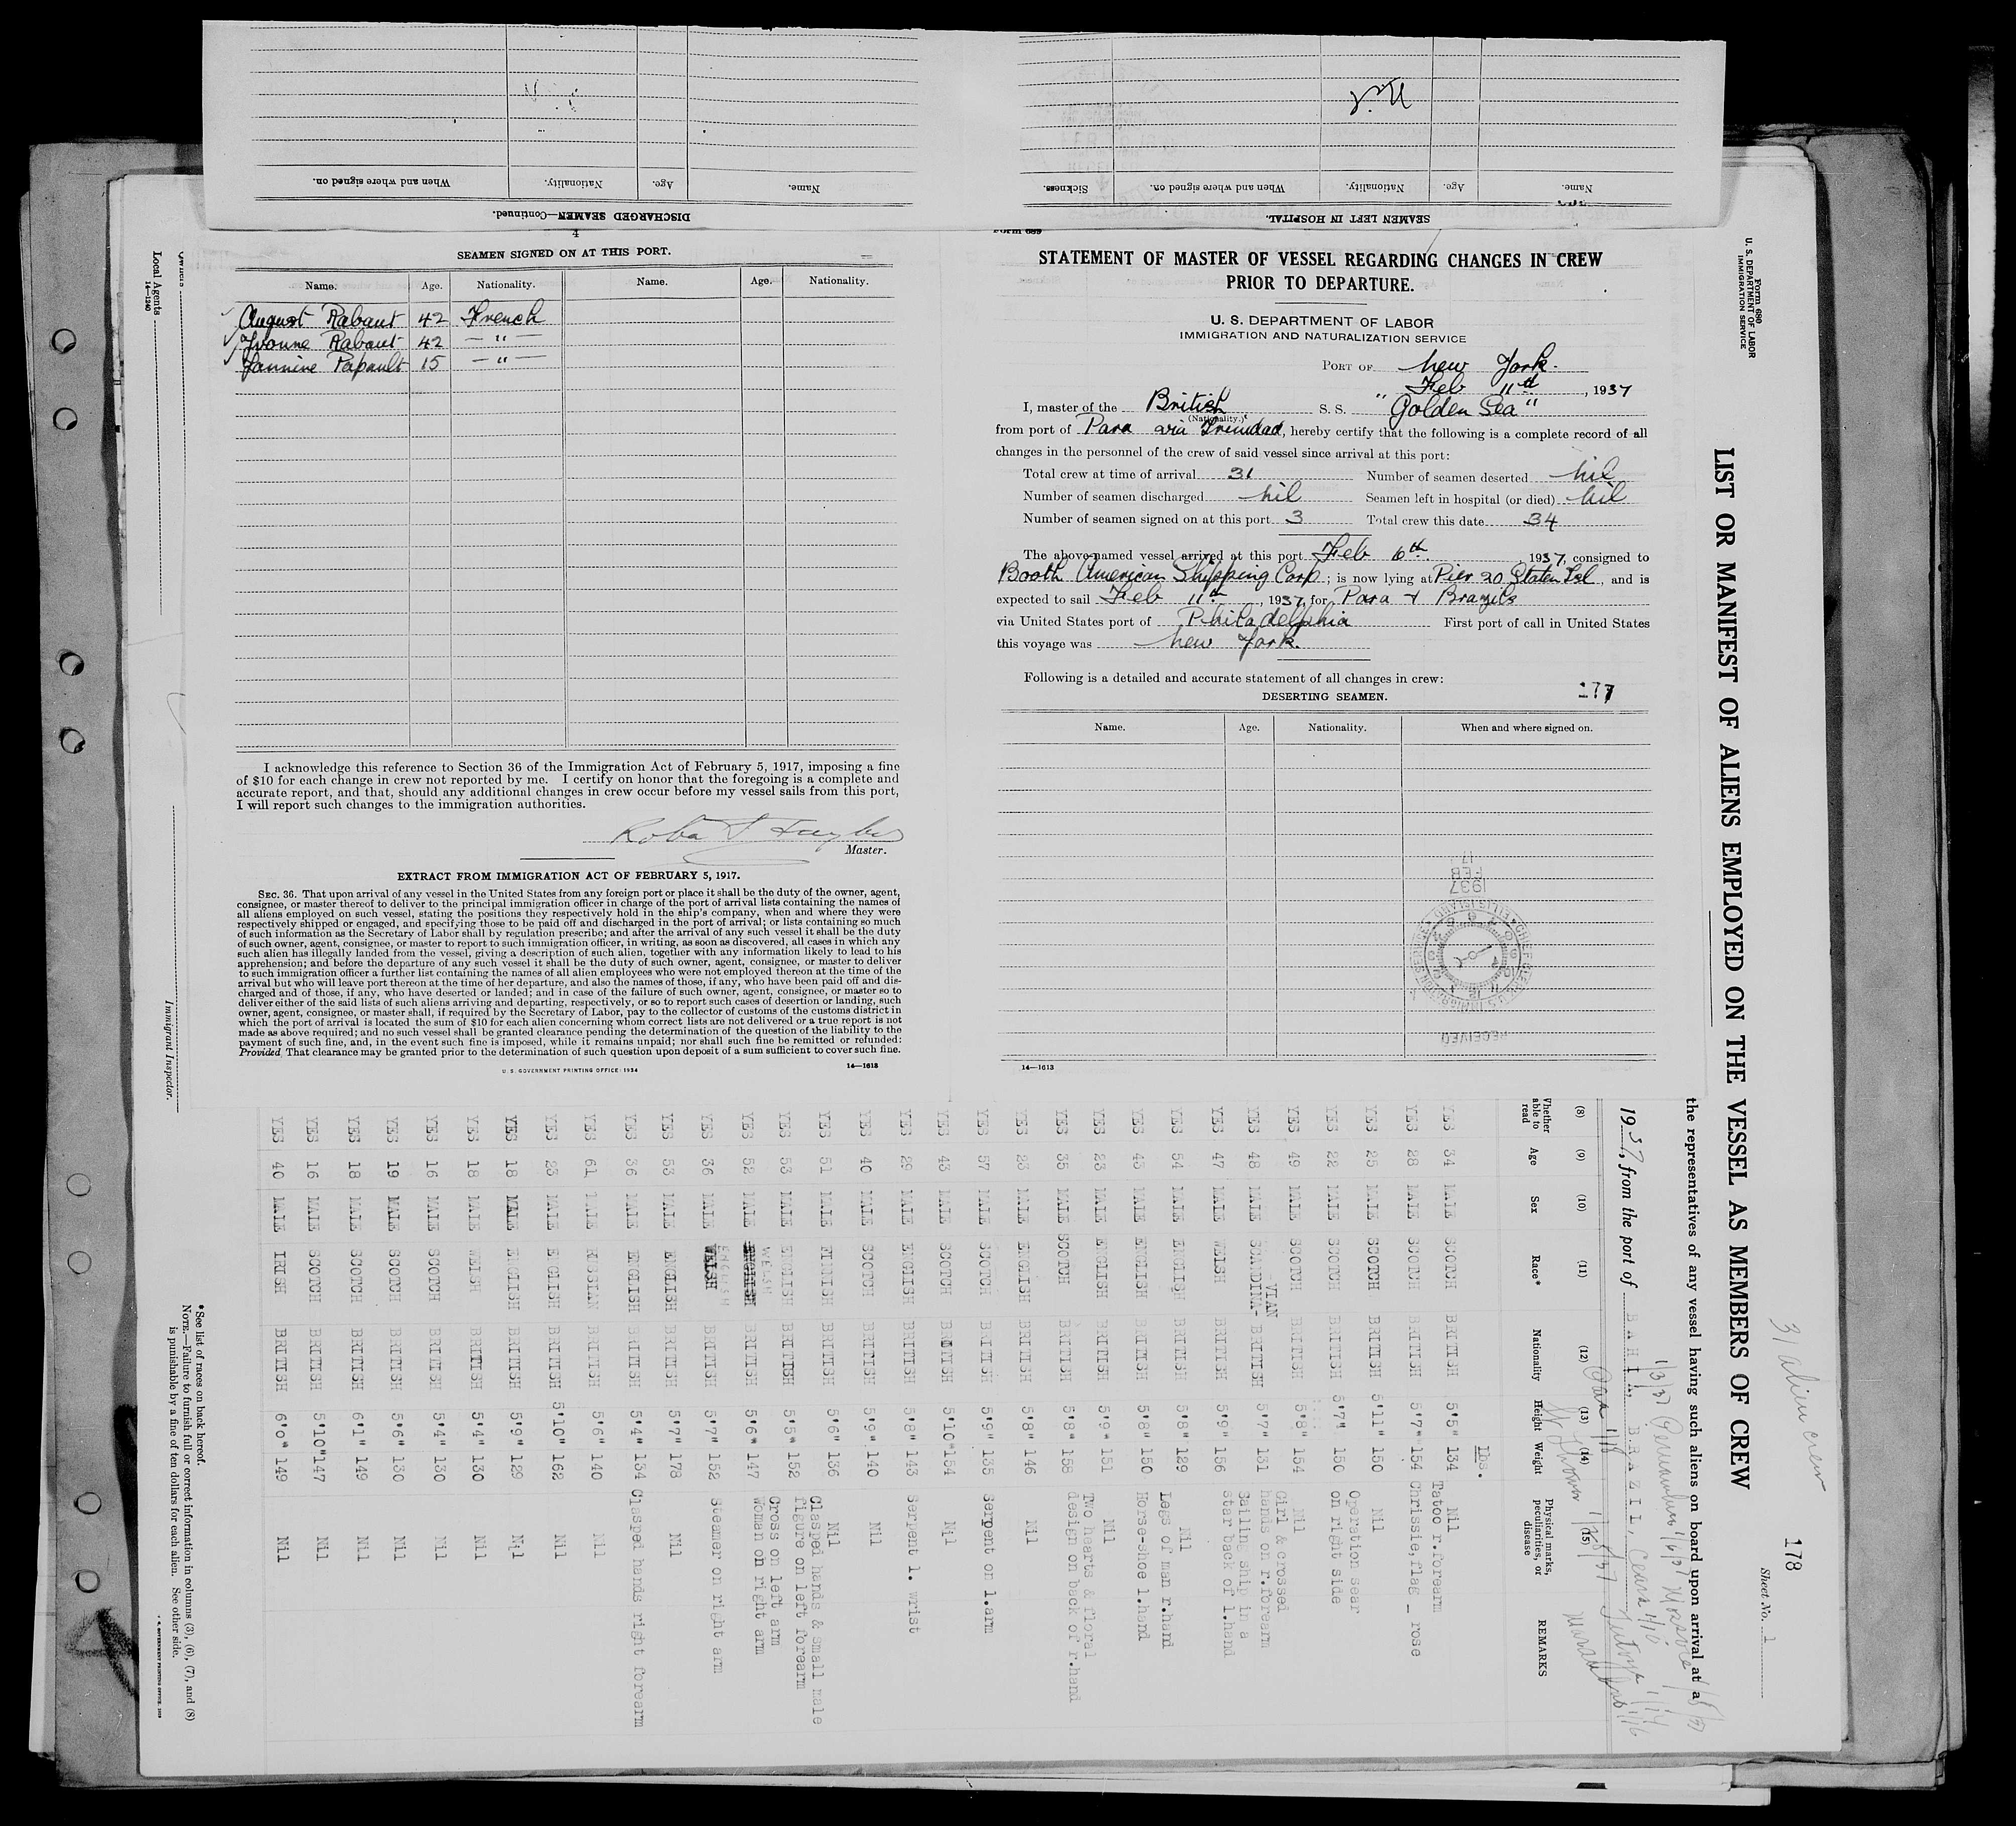 DISCHARGED SEAMEN—Continued.
Name.
Age.
Nationality.
When and where signed on.
SEAMEN LEFT IN HOSPITAL.
Name.
Age.
Nationality.
When and where signed on.
Sickness.
Nil
4
SEAMEN SIGNED ON AT THIS PORT.
Name. Age. Nationality. Name. Age. Nationality.
August Rabaut 42 French
Yvonne Rabaut 42 — " —
Jannine Papault 15 — " —
I acknowledge this reference to Section 36 of the Immigration Act of February 5, 1917, imposing a fine
of $10 for each change in crew not reported by me. I certify on honor that the foregoing is a complete and
accurate report, and that, should any additional changes in crew occur before my vessel sails from this port,
I will report such changes to the immigration authorities.
Master.
EXTRACT FROM IMMIGRATION ACT OF FEBRUARY 5, 1917.
SEC. 36. That upon arrival of any vessel in the United States from any foreign port or place it shall be the duty of the owner, agent,
consignee, or master thereof to deliver to the principal immigration officer in charge of the port of arrival lists containing the names of
all aliens employed on such vessel, stating the positions they respectively hold in the ship's company, when and where they were
respectively shipped or engaged, and specifying those to be paid off and discharged in the port of arrival; or lists containing so much
of such information as the Secretary of Labor shall by regulation prescribe; and after the arrival of any such vessel it shall be the duty
of such owner, agent, consignee, or master to report to such immigration officer, in writing, as soon as discovered, all cases in which any
such alien has illegally landed from the vessel, giving a description of such alien, together with any information likely to lead to his
apprehension; and before the departure of any such vessel it shall be the duty of such owner, agent, consignee, or master to deliver
to such immigration officer a further list containing the names of all alien employees who were not employed thereon at the time of the
arrival but who will leave port thereon at the time of her departure, and also the names of those, if any, who have been paid off and dis-
charged and of those, if any, who have deserted or landed; and in case of the failure of such owner, agent, consignee, or master so to
deliver either of the said lists of such aliens arriving and departing, respectively, or so to report such cases of desertion or landing, such
owner, agent, consignee, or master shall, if required by the Secretary of Labor, pay to the collector of customs of the customs district in
which the port of arrival is located the sum of $10 for each alien concerning whom correct lists are not delivered or a true report is not
made as above required; and no such vessel shall be granted clearance pending the determination of the question of the liability to the
payment of such fine, and, in the event such fine is imposed, while it remains unpaid; nor shall such fine be remitted or refunded:
Provided, That clearance may be granted prior to the determination of such question upon deposit of a sum sufficient to cover such fine.
U. S. GOVERNMENT PRINTING OFFICE: 1934 14—1613
Form 689
STATEMENT OF MASTER OF VESSEL REGARDING CHANGES IN CREW
PRIOR TO DEPARTURE.
U. S. DEPARTMENT OF LABOR
IMMIGRATION AND NATURALIZATION SERVICE
PORT OF New York.
Feb 11th, 1937
I, master of the British S. S. "Golden Sea"
(Nationality.)
from port of Para via Trinidad, hereby certify that the following is a complete record of all
changes in the personnel of the crew of said vessel since arrival at this port:
Total crew at time of arrival 31 Number of seamen deserted nil
Number of seamen discharged nil Seamen left in hospital (or died) nil
Number of seamen signed on at this port 3 Total crew this date 34
The above-named vessel arrived at this port Feb 6th, 1937, consigned to
Booth American Shipping Corp.; is now lying at Pier 20 Staten Isl, and is
expected to sail Feb 11th, 1937, for Para & Brazils
via United States port of Philadelphia First port of call in United States
this voyage was New York.
Following is a detailed and accurate statement of all changes in crew:
DESERTING SEAMEN. 177
Name. Age. Nationality. When and where signed on.
RECEIVED
ELLIS ISLAND
1937
FEB
14—1613
Form 680
U. S. DEPARTMENT OF LABOR
IMMIGRATION SERVICE
LIST OR MANIFEST OF ALIENS EMPLOYED ON THE VESSEL AS MEMBERS OF CREW
31 alien crew
178
Sheet No. 1
the representatives of any vessel having such aliens on board upon arrival at a
1937, from the port of BAHIA, BRAZIL, Ceara 1/10
(8) (9) (10) (11) (12) (13) (14) (15)
Whether able to read Age Sex Race* Nationality Height Weight Physical marks, peculiarities, or disease REMARKS
Lbs.
YES 34 MALE SCOTCH BRITISH 5'5" 134 Nil
Tatoo r.forearm
YES 28 MALE SCOTCH BRITISH 5'7" 154 Chrissie,flag _ rose
YES 25 MALE SCOTCH BRITISH 5'11" 150 Nil
Operation scar
YES 22 MALE SCOTCH BRITISH 5'7" 150 on right side
YES 49 MALE SCOTCH BRITISH 5'8" 154 Nil
Girl & crossed
YES 48 MALE SCANDINAVIAN BRITISH 5'7" 131 hands on r.forearm
Sailing ship in a
YES 47 MALE WELSH BRITISH 5'9" 156 star back of l.hand
YES 54 MALE ENGLISH BRITISH 5'8" 129 Nil
Legs of man r.hand
YES 43 MALE ENGLISH BRITISH 5'8" 150 Horse-shoe l.hand
YES 23 MALE ENGLISH BRITISH 5'9" 151 Nil
Two hearts & floral
YES 35 MALE SCOTCH BRITISH 5'8" 158 design on back of r.hand
YES 23 MALE ENGLISH BRITISH 5'8" 146 Nil
YES 57 MALE SCOTCH BRITISH 5'9" 135 Serpent on l.arm
YES 43 MALE SCOTCH BRITISH 5'10" 154 Nil
YES 29 MALE ENGLISH BRITISH 5'8" 143 Serpent l. wrist
YES 40 MALE SCOTCH BRITISH 5'9" 140 Nil
YES 51 MALE FINNISH BRITISH 5'6" 136 Nil
Clasped hands & small male
YES 53 MALE ENGLISH BRITISH 5'5" 152 figure on left forearm
Cross on left arm
YES 52 MALE WELSH BRITISH 5'6" 147 Woman on right arm
YES 36 MALE ENGLISH BRITISH 5'7" 152 Steamer on right arm
YES 53 MALE ENGLISH BRITISH 5'7" 178 Nil
YES 36 MALE ENGLISH BRITISH 5'4" 134 Clasped hands right forearm
YES 61 MALE RUSSIAN BRITISH 5'6" 140 Nil
YES 23 MALE ENGLISH BRITISH 5'10" 162 Nil
YES 18 MALE ENGLISH BRITISH 5'9" 129 Nil
YES 18 MALE WELSH BRITISH 5'4" 130 Nil
YES 16 MALE SCOTCH BRITISH 5'4" 130 Nil
YES 19 MALE SCOTCH BRITISH 5'6" 130 Nil
YES 18 MALE SCOTCH BRITISH 6'1" 149 Nil
YES 16 MALE SCOTCH BRITISH 5'10" 147 Nil
YES 40 MALE IRISH BRITISH 6'0" 149 Nil
*See list of races on back hereof.
NOTE.—Failure to furnish full or correct information in columns (3), (6), (7), and (8)
is punishable by a fine of ten dollars for each alien. See other side.
Immigrant Inspector.
Owners
Local Agents
14—1240